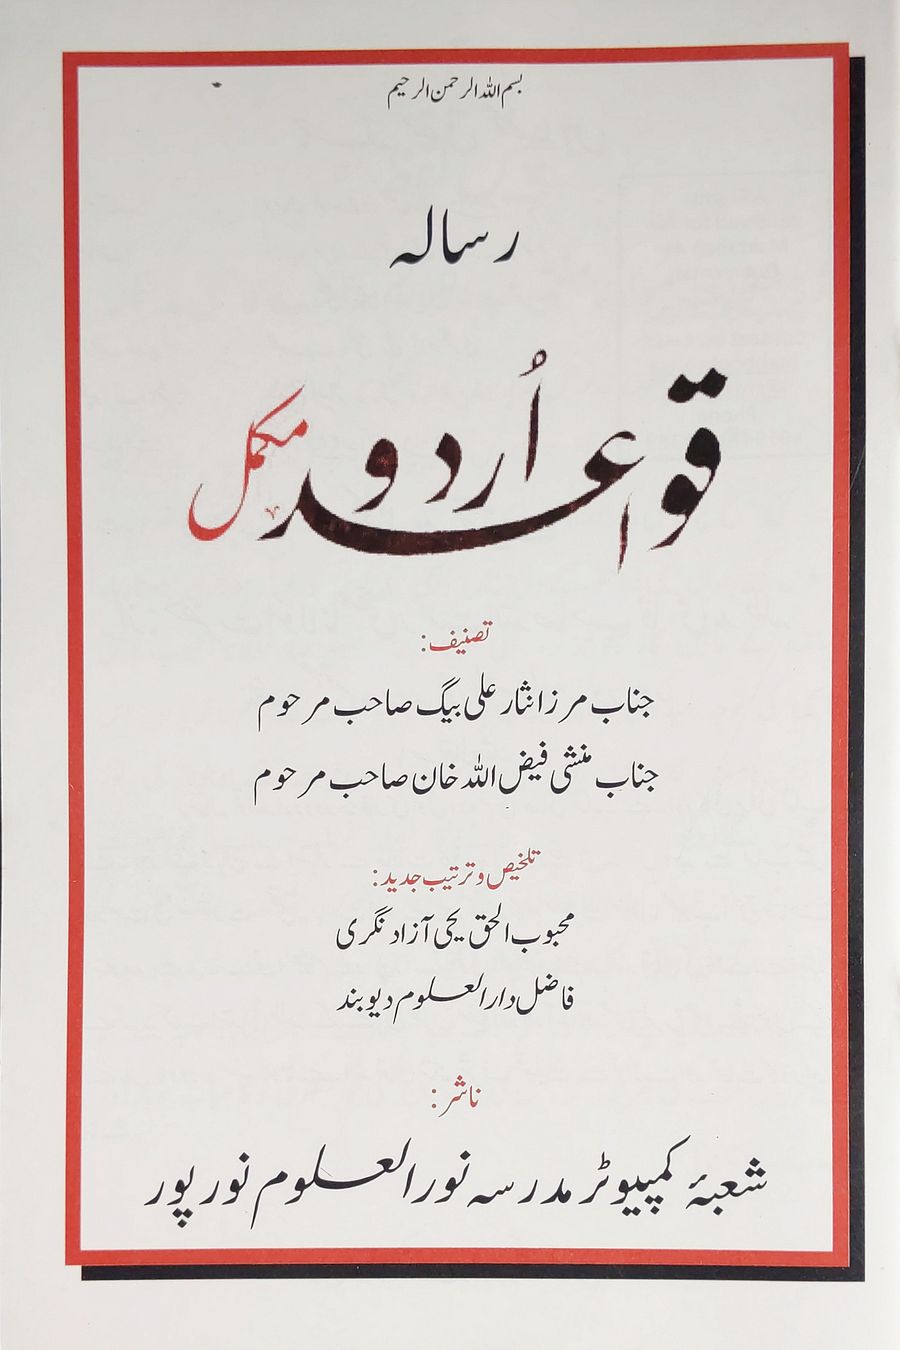 بسم اللہ الرحمن الرحیم
رسالہ
قواعد اُردو مکمل
تصنیف:
جناب مرزا نثار علی بیگ صاحب مرحوم
جناب منشی فیض اللہ خان صاحب مرحوم
تلخیص و ترتیب جدید:
محبوب الحق یحیٰ آزاد نگری
فاضل دارالعلوم دیوبند
ناشر:
شعبۂ کمپیوٹر مدرسہ نورالعلوم نورپور